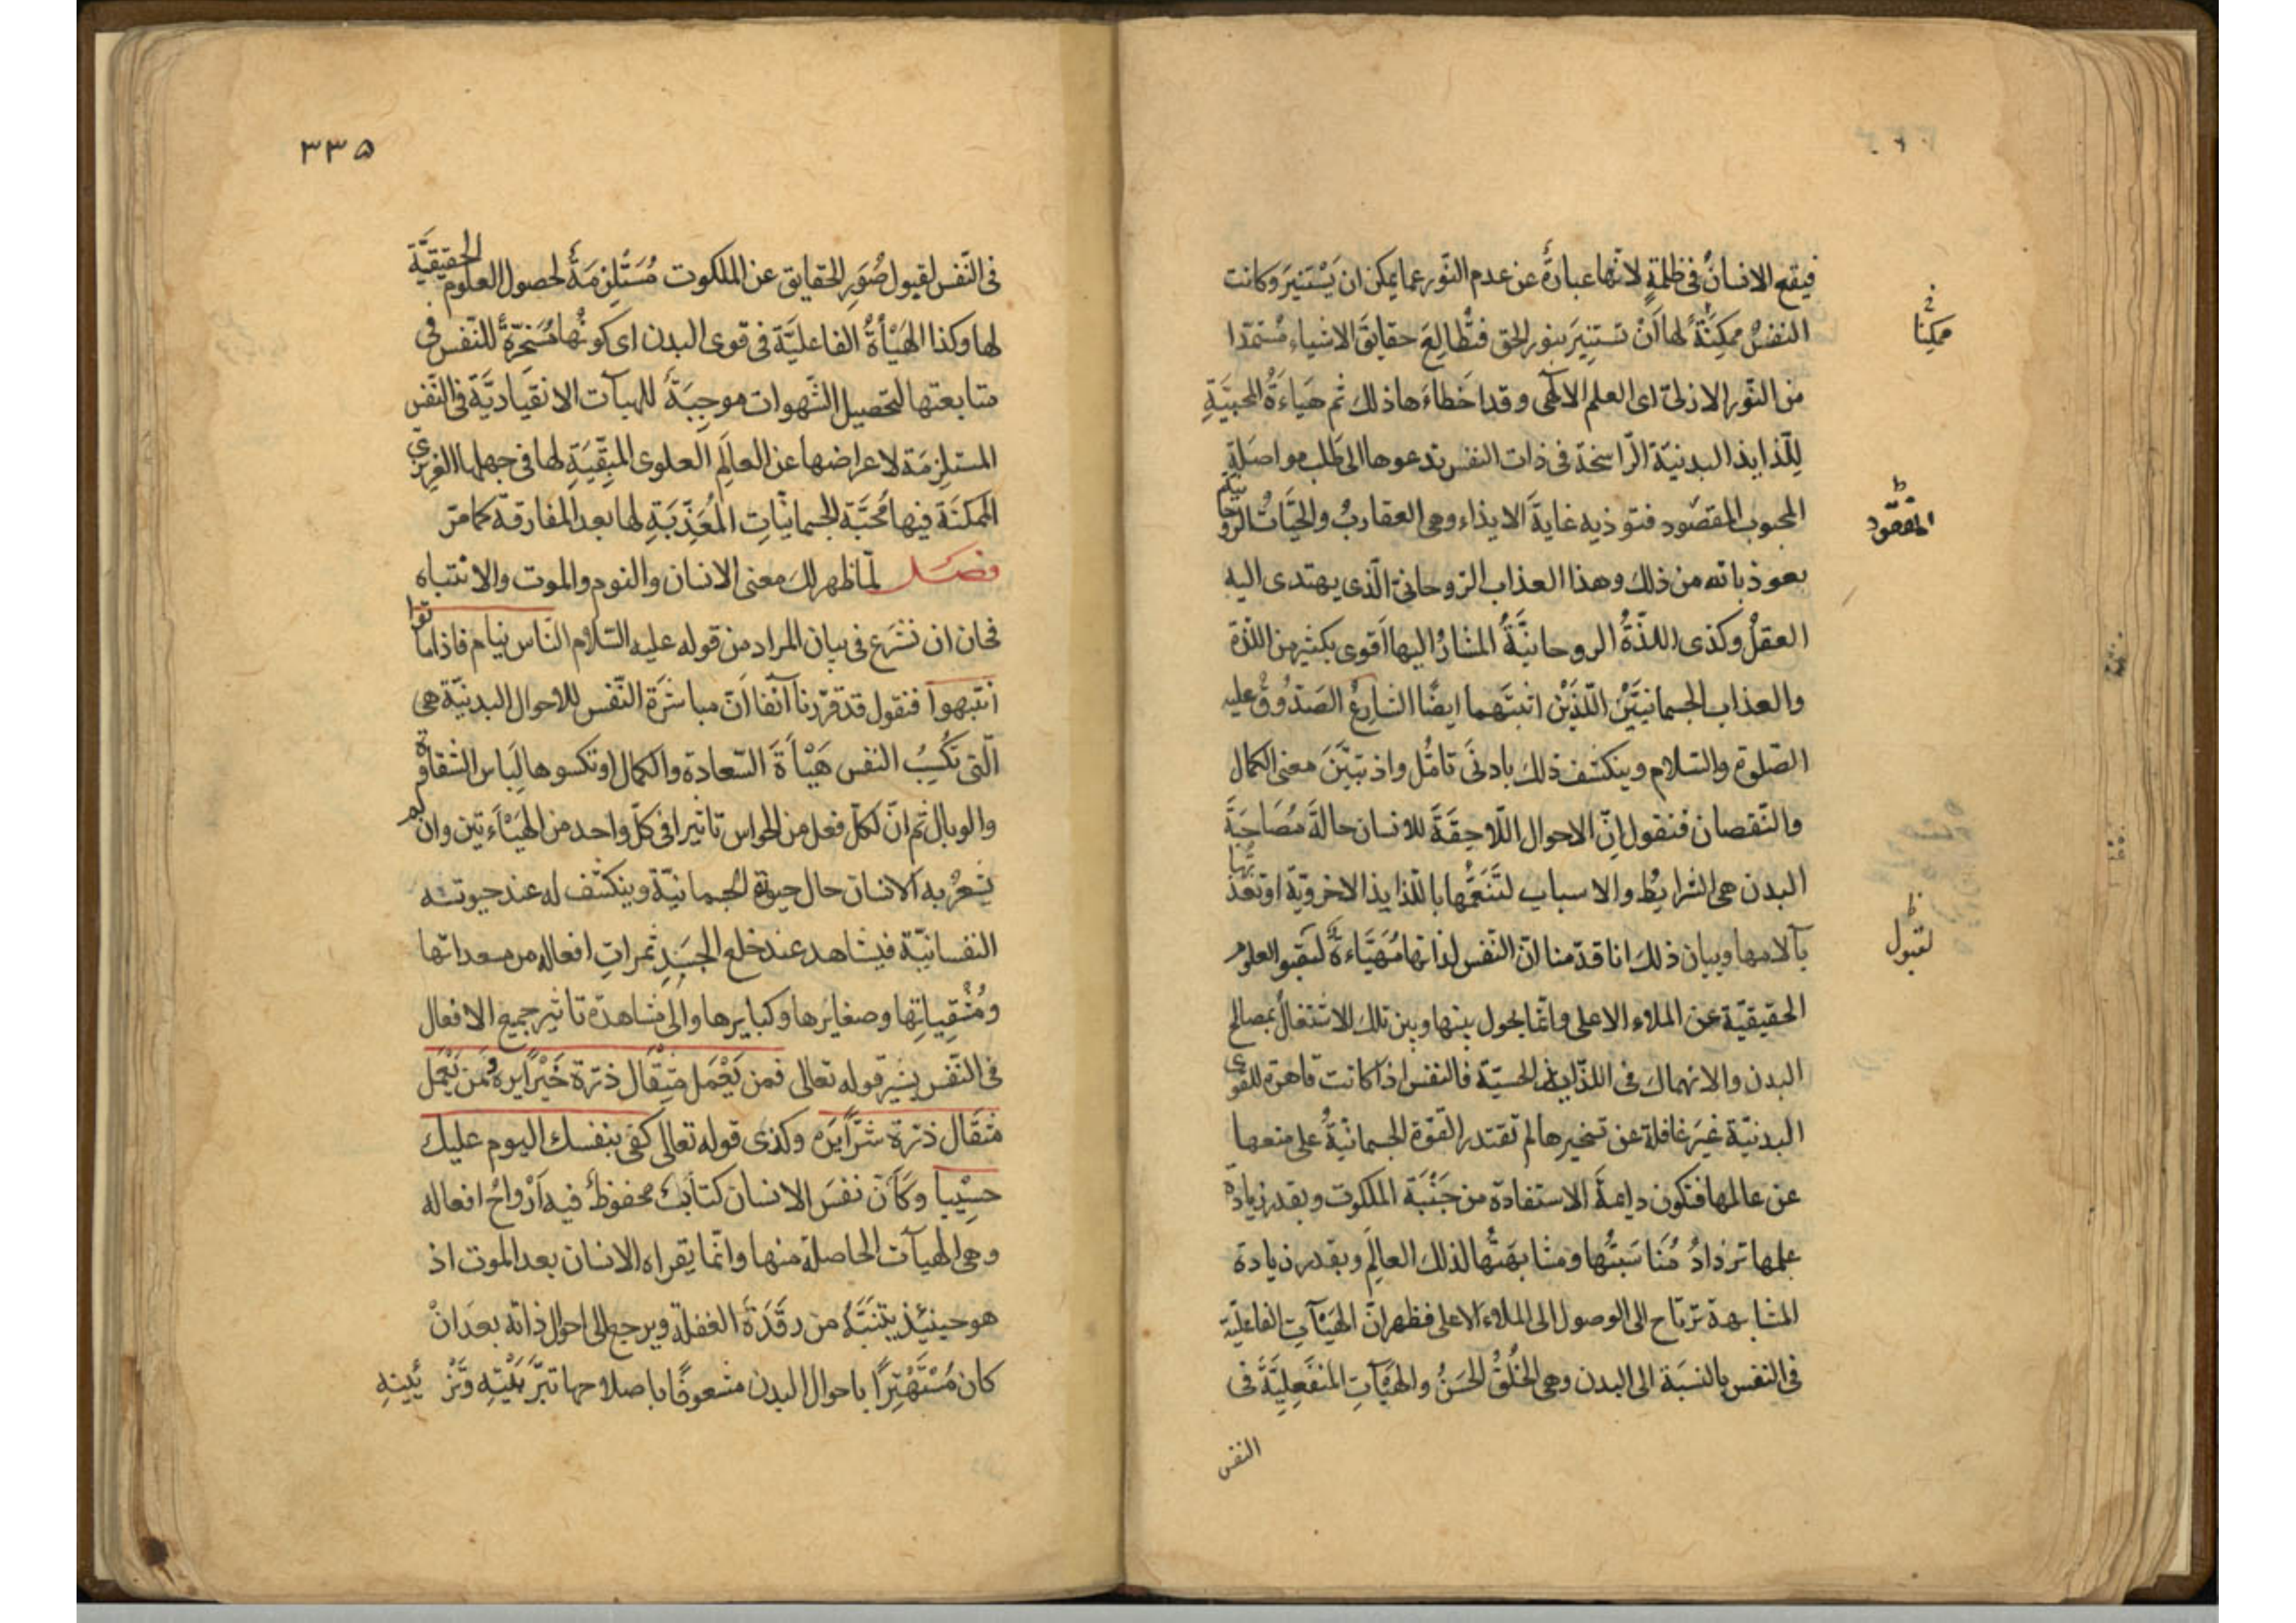 فيقع الانسانُ فى ظلمةٍ لانّها عبارةٌ عن عدم النّور عما يمكن ان يَسْتَنيرَ وكانت
النفسُ ممكِنَّةً لها اَنْ تستنِيرَ بنور الحق فتُطالِعَ حقايقَ الاشياء مُستمدّا
من النّور الازلىّ اى العلم الآلٓهى وقد اَخطاءَها ذلك ثم هَيَاءَةُ المحبيَّةِ
لِلّذايذ البدنيّة الرّاسخة فى ذات النفس تدعوها الى طَلب مواصَلةِ
المحبوب المقصود فتوذيه غايةَ الايذاء وهى العقاربُ والحيَّاتُ الروحا
نيّة
بعوذ باته من ذلك وهذا العذاب الروحانىّ الّذى يهتدى اليه
العقلُ وكذى اللذّةُ الروحانيَّةُ المشارُ اليها اَقوى بكثير من اللذّة
والعذاب الجسمانيّتَيْنِ اللّذَيْن اثبتَهما ايضًا الشارعُ الصَدُوقُ عليه
الصّلوة والسّلام وينكشف ذلك بادنَى تامُّل واذ تبيَّنَ معنى الكمال
والنّقصان فنقول اِنّ الاحوال اللّاحِقَةَ للانسان حالةَ مُصَاحَبَةَ
البدن هى الشرايطُ والاسباب لتَنَعُّمها باللذايذ الاخرويّة او تعذّ
بّها
بآلامها وبيان ذلك انا قدّمنا انّ النّفس لذاتها مُهَيَّاءَةٌ لتقبو العلوم
الحقيقيّة عن الملاء الاعلى وانّما يحول بينها وبين تلك الاشتغالُ بمصالح
البدن والانهماك فى اللذّايذ الحسيّة فالنفس اذا كانت قاهرة للقوى
البدنيّة غيرَ غافلة عن تسخيرها لم تقتدر القوّة الجسمانيّةُ على منعها
عن عالمها فتكون دايمةَ الاستفادة من جَنْبَة الملكوت وبقدر زيادة
علمها تزدادُ مُنَاسَبَتُها ومشابهَتُها لذلك العالَم وبقدر زيادة
المشابهة ترتاح الى الوصول الى الملاء الاعلى فظهر انّ الهَيْآتِ الفاعليّة
فى النفس بالنسَبَة الى البدن وهى الخُلُقُ الحَسَنُ والهَيْآتِ المنفَعِليَّةَ فى
النفس
فى
ممكِنا
ظ
المقصود
ظ
لقبول
٣٣٥
فى النّفس لقبول صُوَرِ الحقايق عن الملكوت مُسَتَلِزمَةٌ لحصول العلوم الحقيقيَّة
لها وكذا الهَيْأةُ الفاعليَّة فى قوى البدن اى كونُها مُسَخَّرَةً للنّفس فى
متابعتها لتحصيل الشّهوات موجِبَةً للهيآت الانقيَاديَّة فى النّفس
المستلزِمَة لاعراضها عن العالَم العلوى المُبقِّيَةِ لها فى جهلها الغريزىّ
الممكنَة فيها مُحَبَّة الجسمانيّاتِ المُعَذِّبَةِ لها بعد المفارقة كما مرّ
فصل لمّا ظهر لك معنى الانسان والنوم والموت والانتباه
فحان ان نشرَع فى بيان المراد من قوله عليه السّلام النّاس نيام فاذا ماتوا
انتبهوا فنقول قد قرّرنا آنفا انّ مباشرَة النّفس للاحوال البدنيّة هى
الّتى تكْسِبُ النفس هَيْأةَ السّعادة والكمال او تكسوها لِبَاس الشقاوة
والوبال ثم انّ لكلّ فعل من الحواس تاثيرا فى كلّ واحد من الهَيْاَءتين وان لم
يشعُرْ به الانسان حال حيوة الجسمانيّة وينكشف له عند حيوته
النفسانيّة فيشاهد عند خلع الجسَدِ ثمراتِ افعاله من مسعداتها
ومُشْقِياتِها وصغايرها وكبايرها والى مشاهدة تاثير جميع الافعال
فى النّفس يشير قوله تعالى فمن يَعْمَل مثِقَال ذرّة خَيْرًا يره ومَن يَعْمَل
مثقَال ذرّة شَرًّا يَرَه وكذى قوله تعالى كفى بنفسك اليوم عليك
حسِيْبا وكَاَنّ نفسَ الانسان كتابٌ محفوظٌ فيه اَرْواحُ افعاله
وهى الهيآت الحاصلة منها وانّما يقراه الانسان بعد الموت اذ
هو حينئذ يتنَبَّهُ من رقَدَة الغفلة ويرجع الى احوال ذاته بعد اَنْ
كان مُسْتَهْتِرًا باحوال البدن مشعوفًا باصلاحها